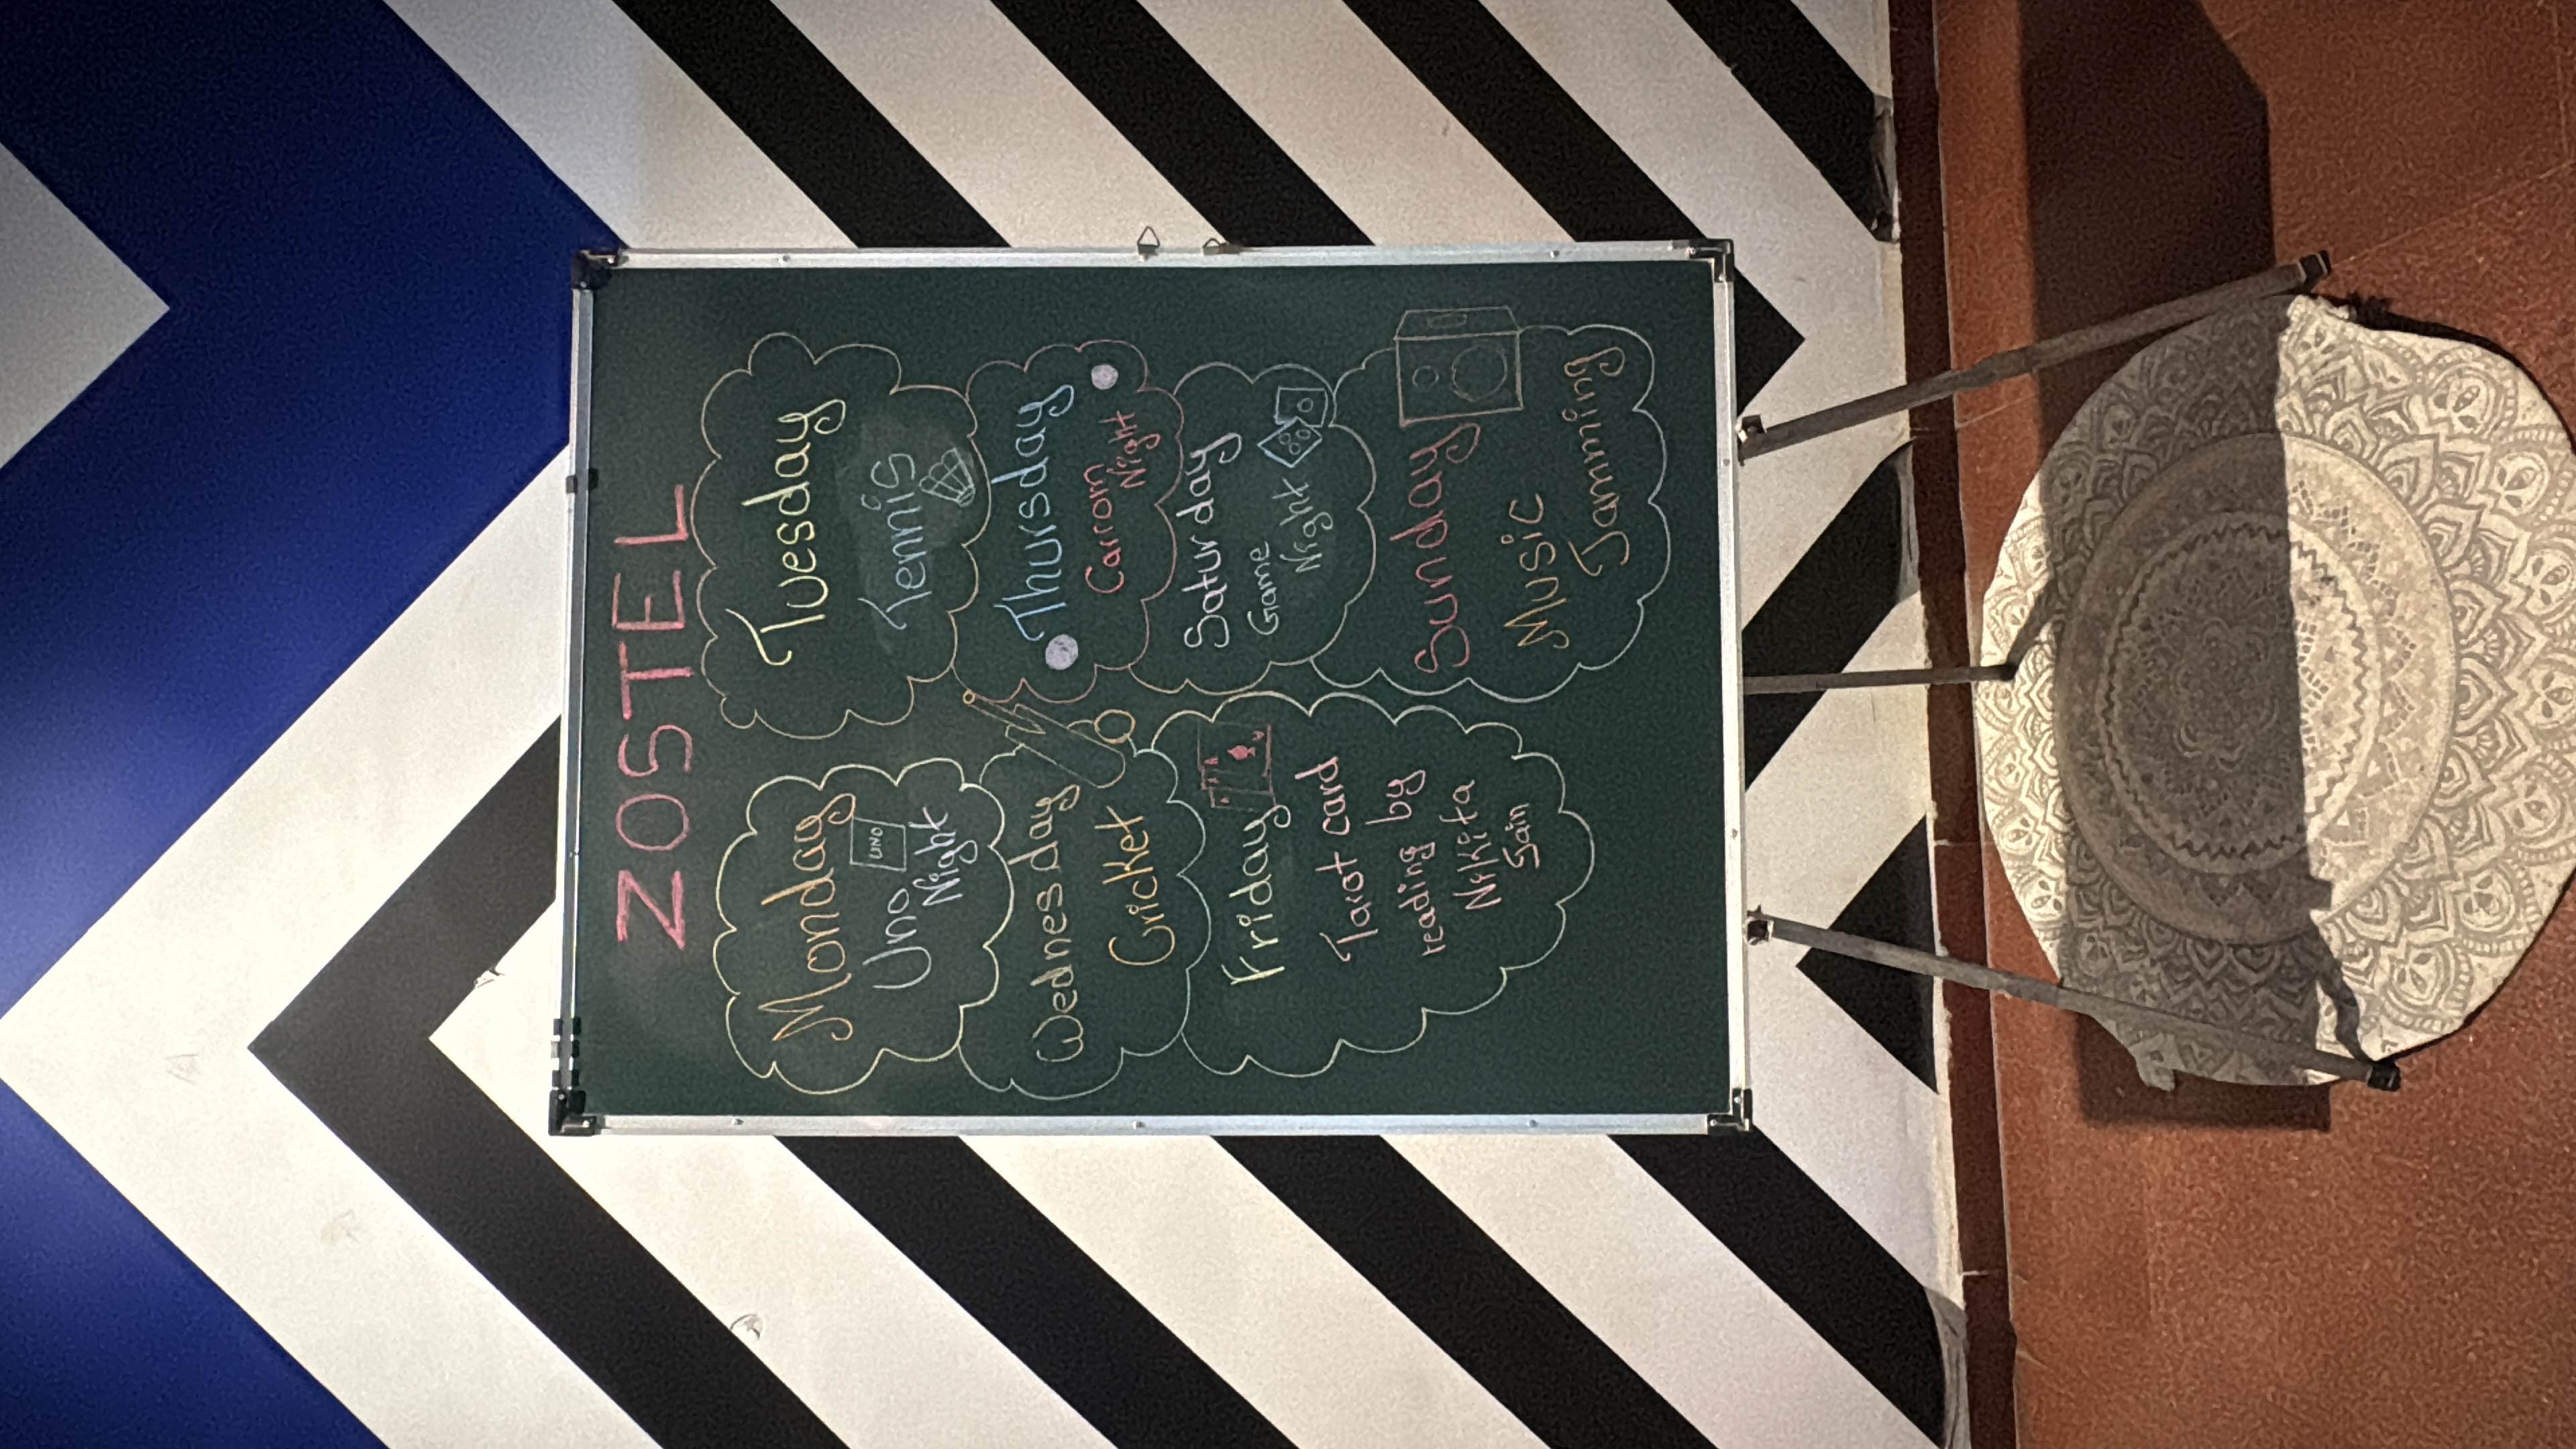 ZOSTEL
Monday
Uno
UNO
Night
Tuesday
Tennis
Wednesday
Cricket
Thursday
Carrom
Night
Friday
Tarot card
reading by
Nikita
Saturday
Game
Night
Sunday
Music
Jamming